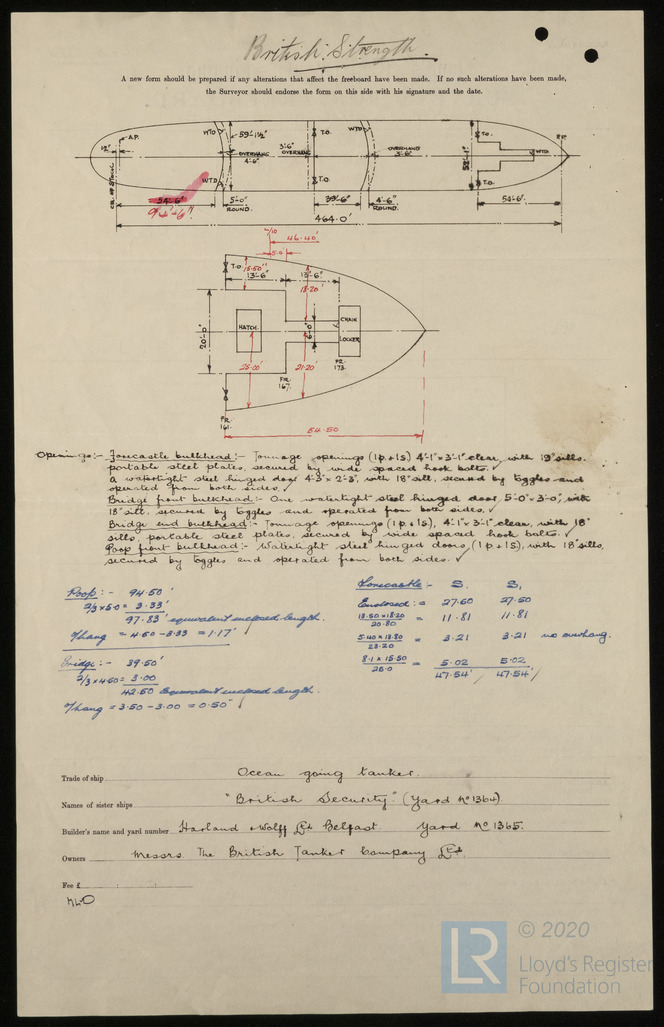 British Strength.
A new form should be prepared if any alterations that affect the freeboard have been made. If no such alterations have been made,
the Surveyor should endorse the form on this side with his signature and the date.
½" A.P. WTD 59'-1½" 3'-6" OVERHANG T.O. WTD OVERHANG 3'-6" T.O. WTD F.P.
OVERHANG 4'-6"
WTD T.O. T.O.
54'-6" 5'-0" ROUND. 39'-6" 4'-6" ROUND. 54'-6"
94'-6"
464.0'
46.40'
5.0'
T.O. 15.50' 13'-6" 13'-6"
18.20'
20'-0" HATCH. 6'-0" CHAIN LOCKER
25.00' 21.20' FR. 173.
FR. 167.
FR. 161.
54.50
Openings:- Forecastle bulkhead:- Tonnage openings (1p+1s) 4'-1"x3'-1" clear, with 18" sills.
portable steel plates, secured by wide spaced hook bolts. ✓
A watertight steel hinged door 4'-3"x2'-3", with 18" sill, secured by toggles and
operated from both sides. ✓
Bridge front bulkhead:- One watertight steel hinged door, 5'-0"x3'-0", with
18" sill, secured by toggles and operated from both sides. ✓
Bridge end bulkhead:- Tonnage openings (1p+1s), 4'-1"x3'-1" clear, with 18"
sills, portable steel plates, secured by wide spaced hook bolts. ✓
Poop front bulkhead:- Watertight steel hinged doors, (1p+1s), with 18" sills,
secured by toggles and operated from both sides. ✓
Poop:- 94.50'
2/3x5.0= 3.33'
97.83' equivalent enclosed length.
O/hang = 4.50-3.33 = 1.17'
Bridge:- 39.50'
2/3x4.50= 3.00
42.50 equivalent enclosed length.
O/hang = 3.50-3.00 = 0.50'
Forecastle:- S. S,
Enclosed:= 27.50 27.50
13.50x18.20 / 20.80 = 11.81 11.81
5.40x13.80 / 23.20 = 3.21 3.21 no overhang.
8.1x15.50 / 25.0 = 5.02 5.02
47.54' 47.54'
Trade of ship Ocean going tanker.
Names of sister ships "British Security" (Yard No 1364)
Builder's name and yard number Harland & Wolff Ltd Belfast. Yard No 1365.
Owners Messrs The British Tanker Company Ltd.
Fee £
LR © 2020
Lloyd's Register
Foundation